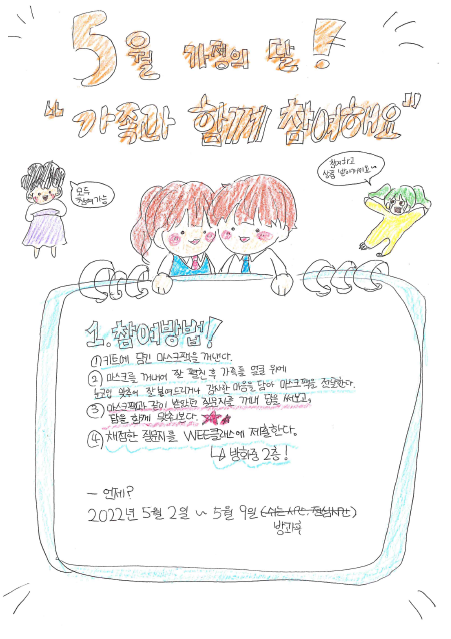 5월 가정의 달!
"가족과 함께 참여해요"
모두
참여가능
참여하고
상품 받아가세요~
1. 참여방법!
① 키트에 담긴 마스크팩을 꺼낸다.
② 마스크를 꺼내어 잘 펼친 후 가족들 얼굴 위에
눈코입 맞춰 잘 붙여드리거나 감사한 마음을 담아 마스크팩을 전달한다.
③ 마스크팩과 같이 받았던 질문지를 꺼내 답을 써보고,
답을 함께 맞춰보다.
④ 채점한 질문지를 WEE클래스에 제출한다.
↳ 방화중 2층!
- 언제?
2022년 5월 2일 ~ 5월 9일 (쉬는시간, 점심시간)
방과후